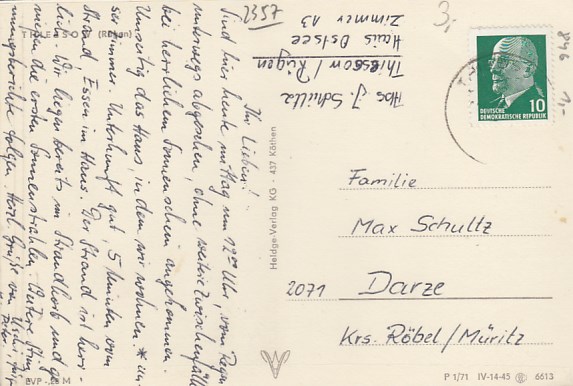 THIESSOW (Rügen)
Ihr Lieben!
Sind hier heute mittag um 12°° Uhr, vom Regen
unterwegs abgesehen, ohne weitere Zwischenfälle
bei herrlichem Sonnenschein angekommen.
Umseitig das Haus, in dem wir wohnen *
ser Zimmer. Unterkunft gut, 5 Minuten vom
Strand, Essen im Haus. Der Strand ist herr-
lich. Wir liegen bereits im Strandkorb und ge-
nießen die ersten Sonnenstrahlen. Weitere Stim-
mungsberichte folgen. Herzl. Grüße von
EVP -,20 M
Heldge-Verlag KG · 437 Köthen
2357
Abs J Schultz
Thiessow / Rügen
Haus Ostsee
Zimmer 13
3,
846
1,-
DEUTSCHE
DEMOKRATISCHE REPUBLIK
10
Familie
Max Schultz
2071 Darze
Krs. Röbel/Müritz
P 1/71 IV-14-45 6613